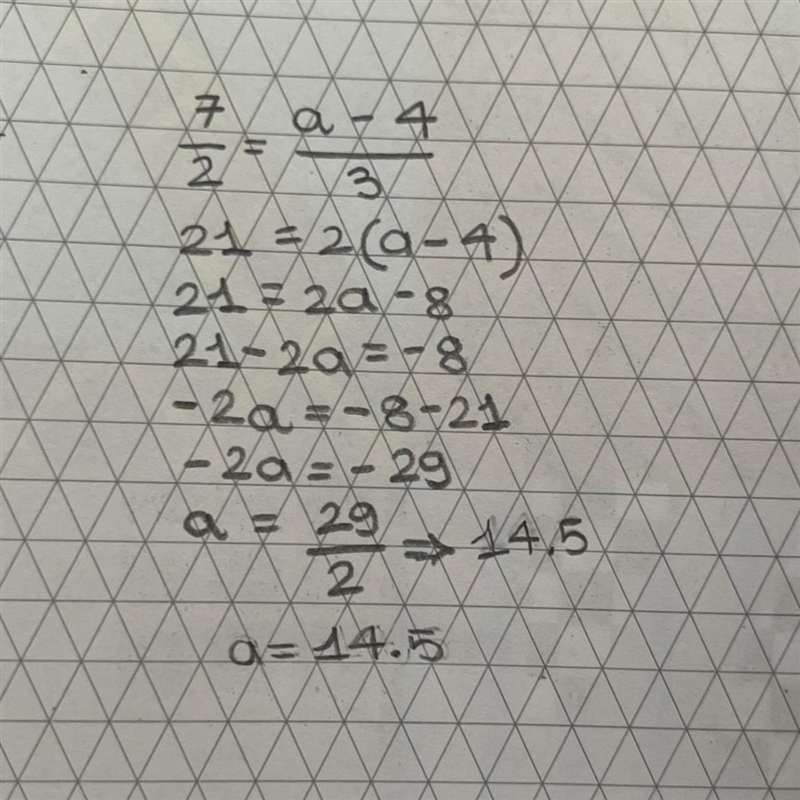 7/2 = (a - 4)/3
21 = 2(a - 4)
21 = 2a - 8
21 - 2a = -8
-2a = -8 - 21
-2a = -29
a = 29/2 ⇒ 14.5
a = 14.5